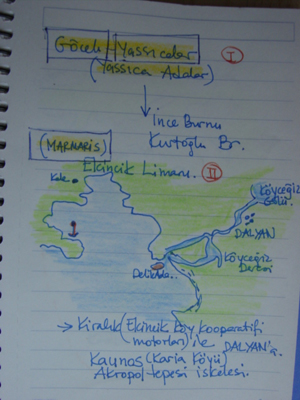 Göcek Yassıcalar I
(Yassıca Adalar)
İnce Burnu
Kurtoğlu Br.
(MARMARİS)
Ekincik Limanı. II
Kale
Köyceğiz
Gölü.
DALYAN
Köyceğiz
Deresi
Delikada
→ Kiralık (Ekincik Köy Kooperatifi
motorları) ile DALYAN'a.
Kaunos (Karia Köyü)
Akropol tepesi iskelesi.